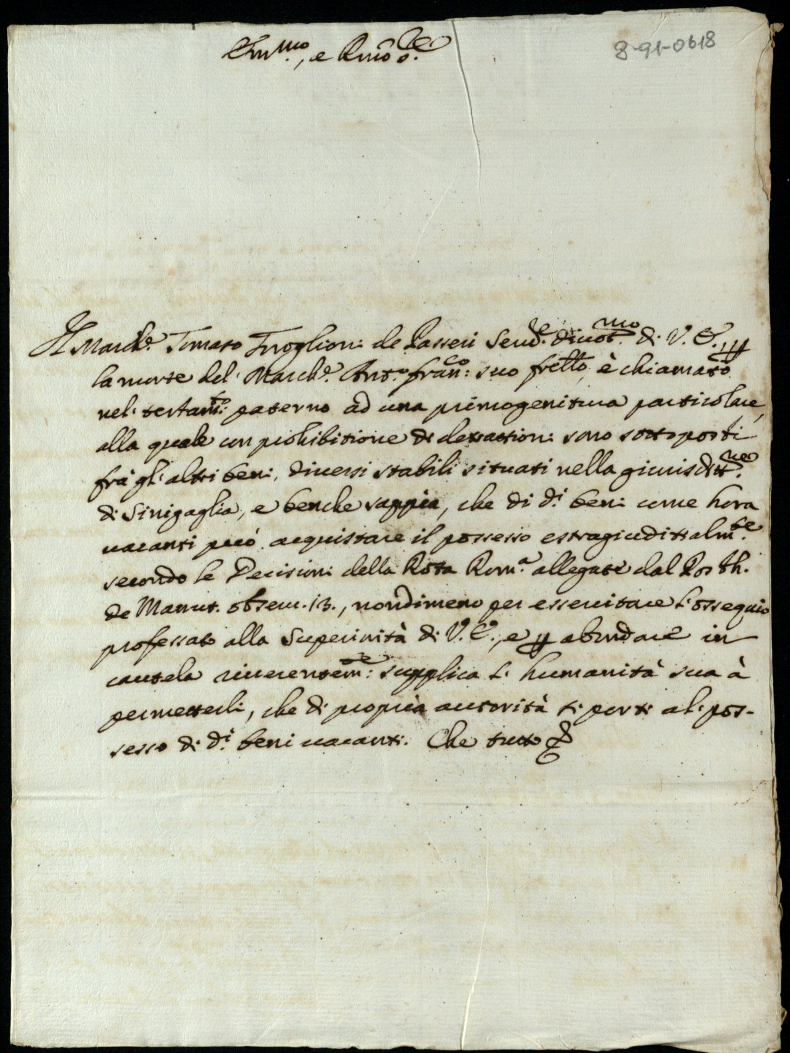 Em.mo, e R.mo S.re
8-91-0618
Il March.e Timoteo Troglioni de Passeri Serv.re divot.mo di V. E. per
la morte del March.e Ant.o Fran.co suo frello, è chiamato
nel testam.to paterno ad una primogenitura particolare,
alla quale con prohibitione di detrattioni sono sottoposti
frà gl'altri beni, diversi stabili situati nella giurisditt.ne
di Sinigaglia, e benche sappia, che di d.i beni come hora
vacanti può acquistare il possesso estragiudittialm.te
secondo le Decisioni della Rota Rom.a allegate dal Posth.
de Manut. observ. 13., nondimeno per essercitare l'ossequio
professato alla Superiorità di V. E., e per abundare in
cautela riverentem.te supplica l'humanità sua à
permetterli, che di propria autorità si porti al pos-
sesso di d.i beni vacanti. Che tutto &